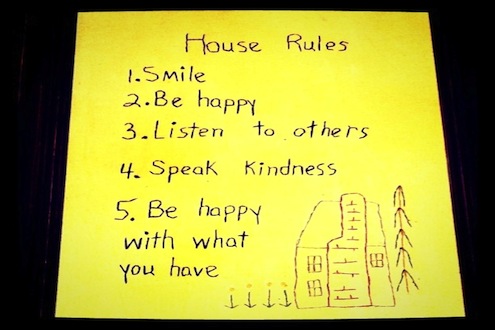 House Rules
1. Smile
2. Be happy
3. Listen to others
4. Speak Kindness
5. Be happy
with what
you have